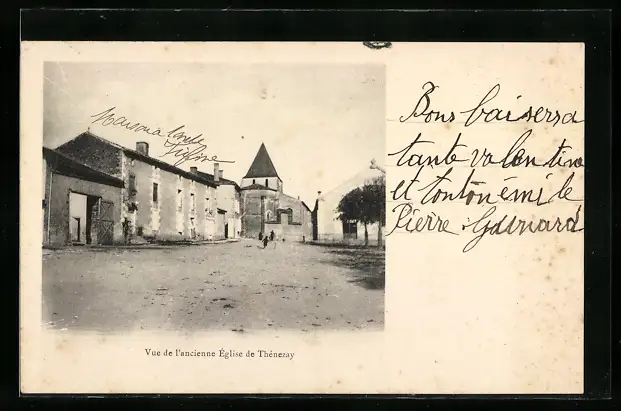 Maison à
Bons baisers a
tante valentine
et tonton émile
Pierre Guinard
Vue de l'ancienne Église de Thénezay